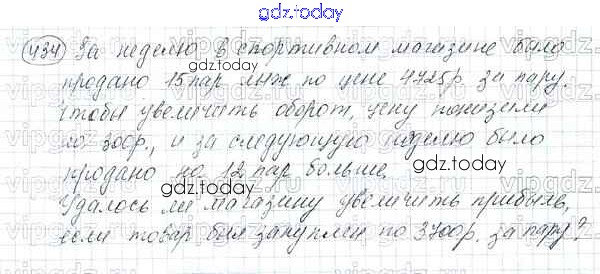 gdz.today
434 За неделю в спортивном магазине было
продано 15 пар лыж по цене 4725р за пару.
gdz.today
Чтобы увеличить оборот, цену понизили
на 300р., и за следующую неделю было
gdz.today
продано на 12 пар больше.
gdz.today
Удалось ли магазину увеличить прибыль,
если товар был закуплен по 3700р. за пару?
gdz.today